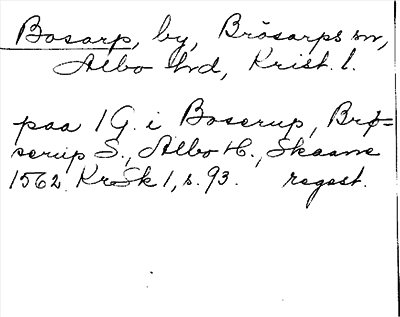 Bosarp, by, Brösarps sn,
Albo hd, Krist. l.
paa 1 G. i Boserup, Brø=
serup S., Albo H., Skaane
1562. KrSk 1, s. 93. regest.